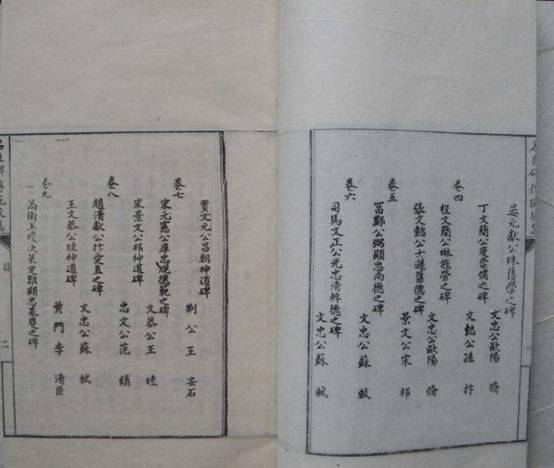 晏元獻公殊舊學之碑 文忠公歐陽 脩
卷四
丁文簡公度崇儒之碑 文懿公孫 抃
程文簡公琳旌勞之碑 文忠公歐陽 脩
張文懿公士遜舊德之碑 景文公宋 祁
卷五
富鄭公弼顯忠尚德之碑 文忠公蘇 軾
卷六
司馬文正公光忠清粹德之碑 文忠公蘇 軾
賈文元公昌朝神道碑 荆公王 安石
卷七
宋元憲公庠忠規德範之碑 文恭公王 珪
宋景文公祁神道碑 忠文公范 鎮
卷八
趙清獻公抃愛直之碑 文忠公蘇 軾
王文恭公珪神道碑 黃門李 清臣
卷九
高衛王瓊決策定難顯忠基慶之碑
目
二